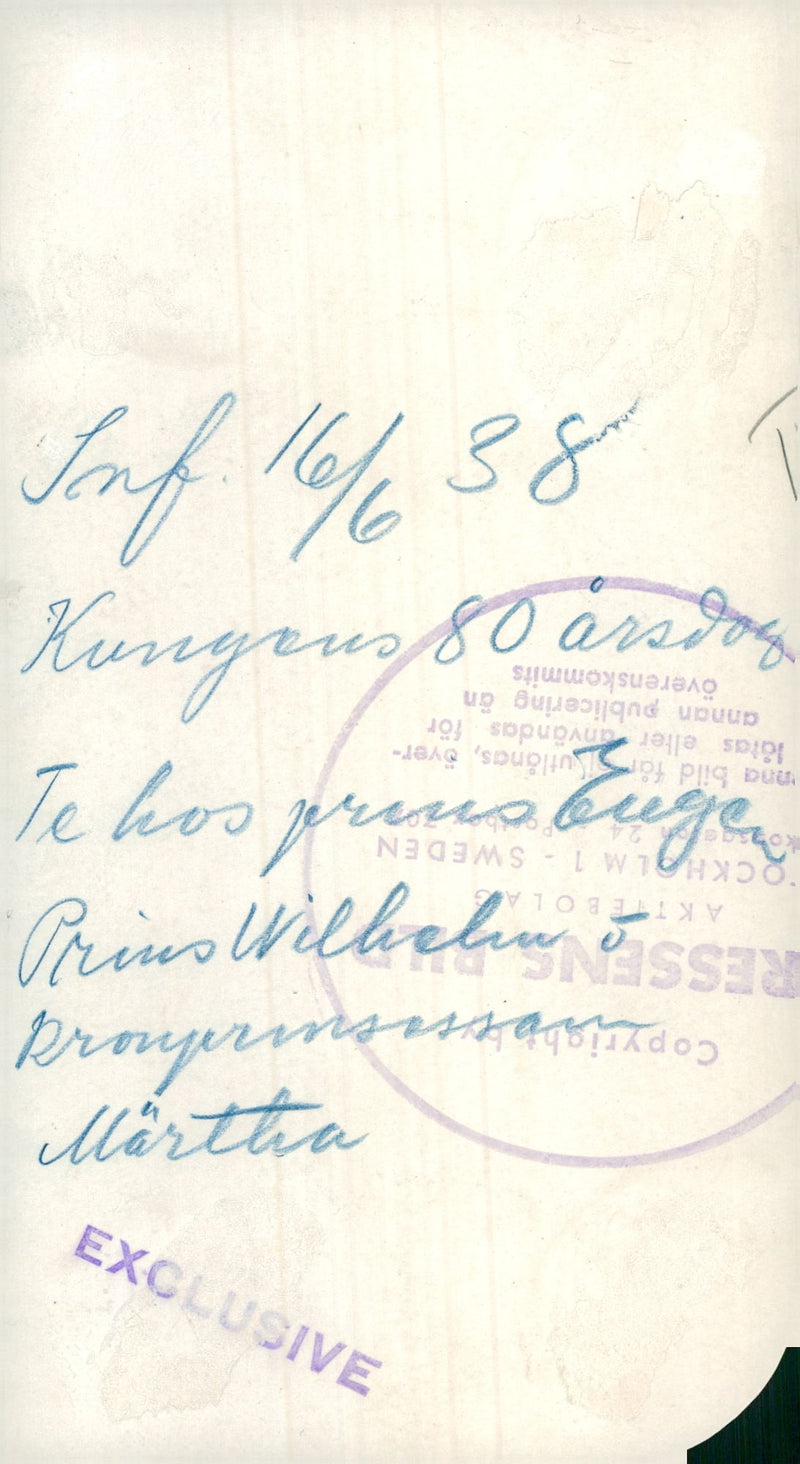 Inf. 16/6 38
Kungens 80 årsdag
Te hos prins Eugen
Prins Wilhelm o
Kronprinsessan
Märtha
EXCLUSIVE
Copyright by
RESSENS BILD
AKTIEBOLAG
OCKHOLM 1 - SWEDEN
24 Postbox
nna bild får ej utlånas, över-
låtas eller användas för
annan publicering än
överenskommits